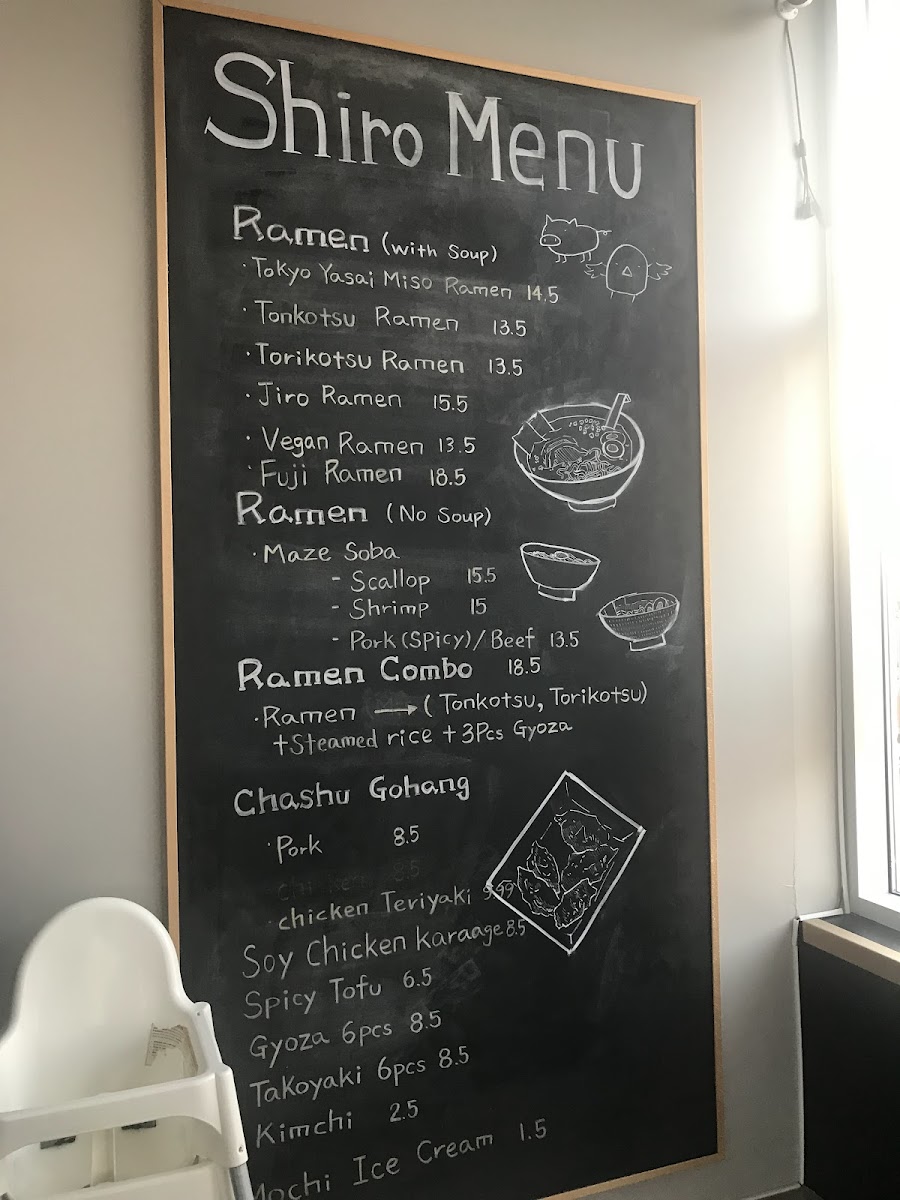 Shiro Menu
Ramen (with Soup)
·Tokyo Yasai Miso Ramen 14.5
·Tonkotsu Ramen 13.5
·Torikotsu Ramen 13.5
·Jiro Ramen 15.5
·Vegan Ramen 13.5
·Fuji Ramen 18.5
Ramen (No Soup)
·Maze Soba
- Scallop 15.5
- Shrimp 15
- Pork (Spicy)/Beef 13.5
Ramen Combo 18.5
·Ramen → (Tonkotsu, Torikotsu)
+Steamed rice +3Pcs Gyoza
Chashu Gohang
·Pork 8.5
8.5
·chicken Teriyaki 9.99
Soy Chicken karaage 8.5
Spicy Tofu 6.5
Gyoza 6pcs 8.5
Takoyaki 6pcs 8.5
Kimchi 2.5
Mochi Ice Cream 1.5